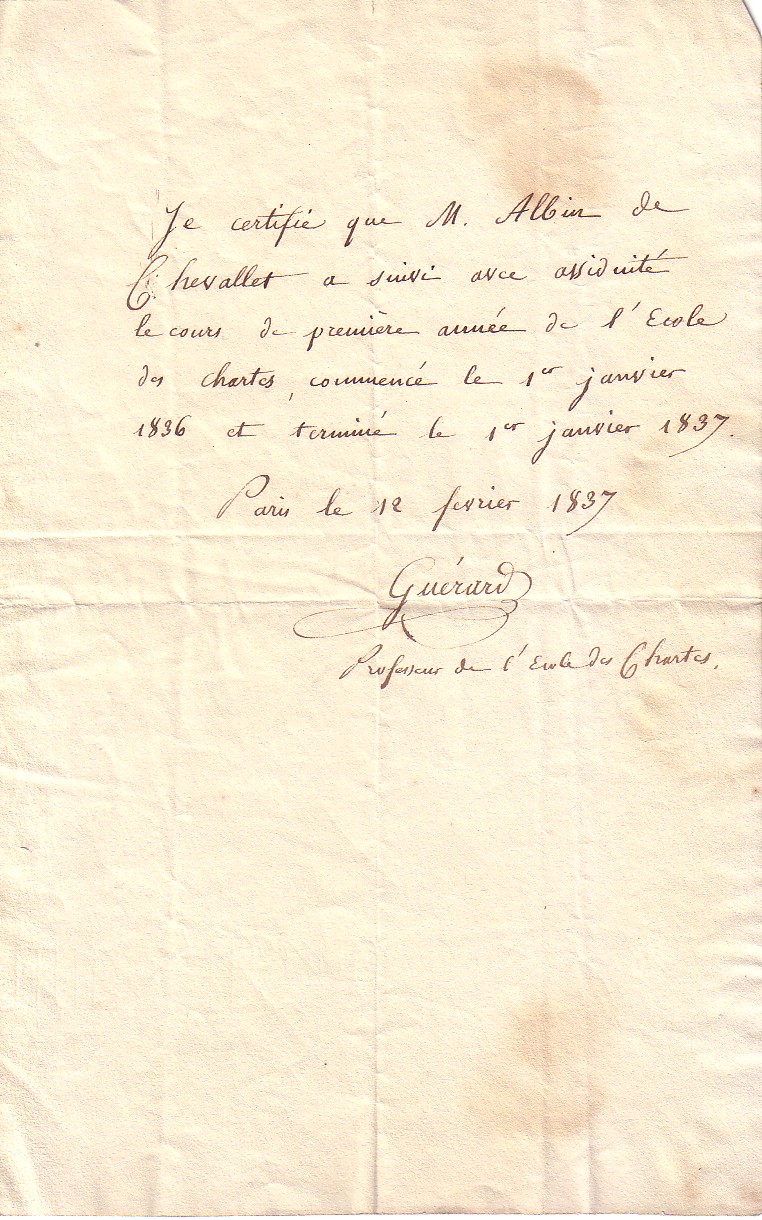 Je certifie que M. Albin de
Chevallet a suivi avec assiduité
le cours de première année de l'Ecole
des chartes, commencé le 1er janvier
1836 et terminé le 1er janvier 1837.
Paris le 12 fevrier 1837
Guérard
Professeur de l'Ecole des Chartes.